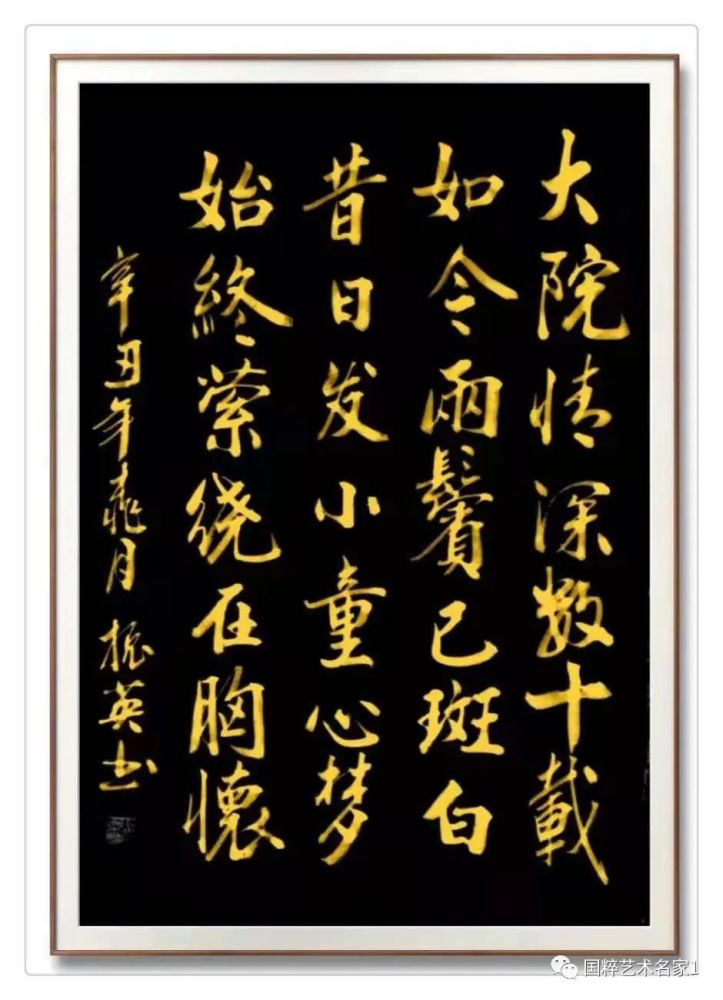 大院情深数十載
如今兩鬢已斑白
昔日发小童心梦
始終萦绕在胸懷
辛丑年桃月 振英书
国粹艺术名家1